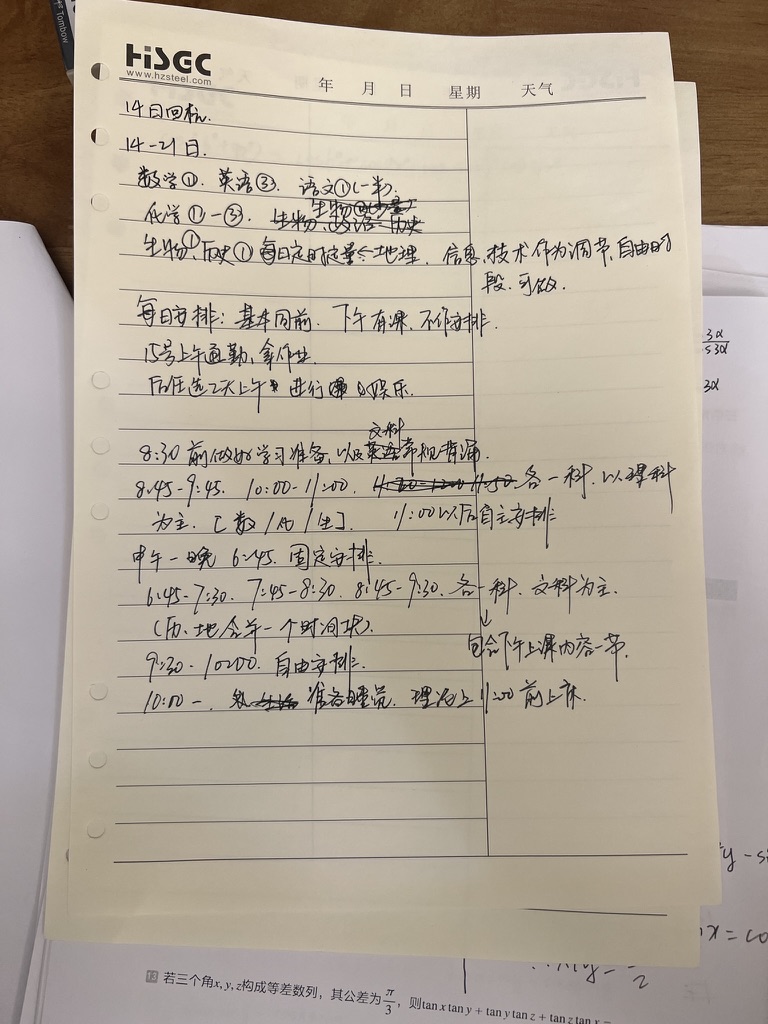 Tombow
HiSGC
www.hzsteel.com
年 月 日 星期 天气
14日回杭.
14-21日.
数学①. 英语③. 语文①(一半).
化学①-③. 生物、政治、历史
生物①、历史① 每日定时定量 地理. 信息、技术作为调节,自由时
段.可做.
每日安排: 基本同前. 下午有课.不作安排.
15号上午通勤,拿作业.
后任选2天上午 进行 娱乐.
文科
8:30 前做好学习准备,以及英语常规背诵.
8:45-9:45. 10:00-11:00. 各一科.以理科
为主. [数/化/生]. 11:00以后自主安排
中午一晚 6:45. 固定安排.
6:45-7:30. 7:45-8:30. 8:45-9:30. 各一科. 文科为主.
(历、地合并一个时间块). ↓
包含下午上课内容一节.
9:30-10:00. 自由安排.
10:00-. 准备睡觉. 理论上11:00前上床.
3α
3α
13 若三个角x,y,z构成等差数列，其公差为π/3，则tan x tan y + tan y tan z + tan z tan x =